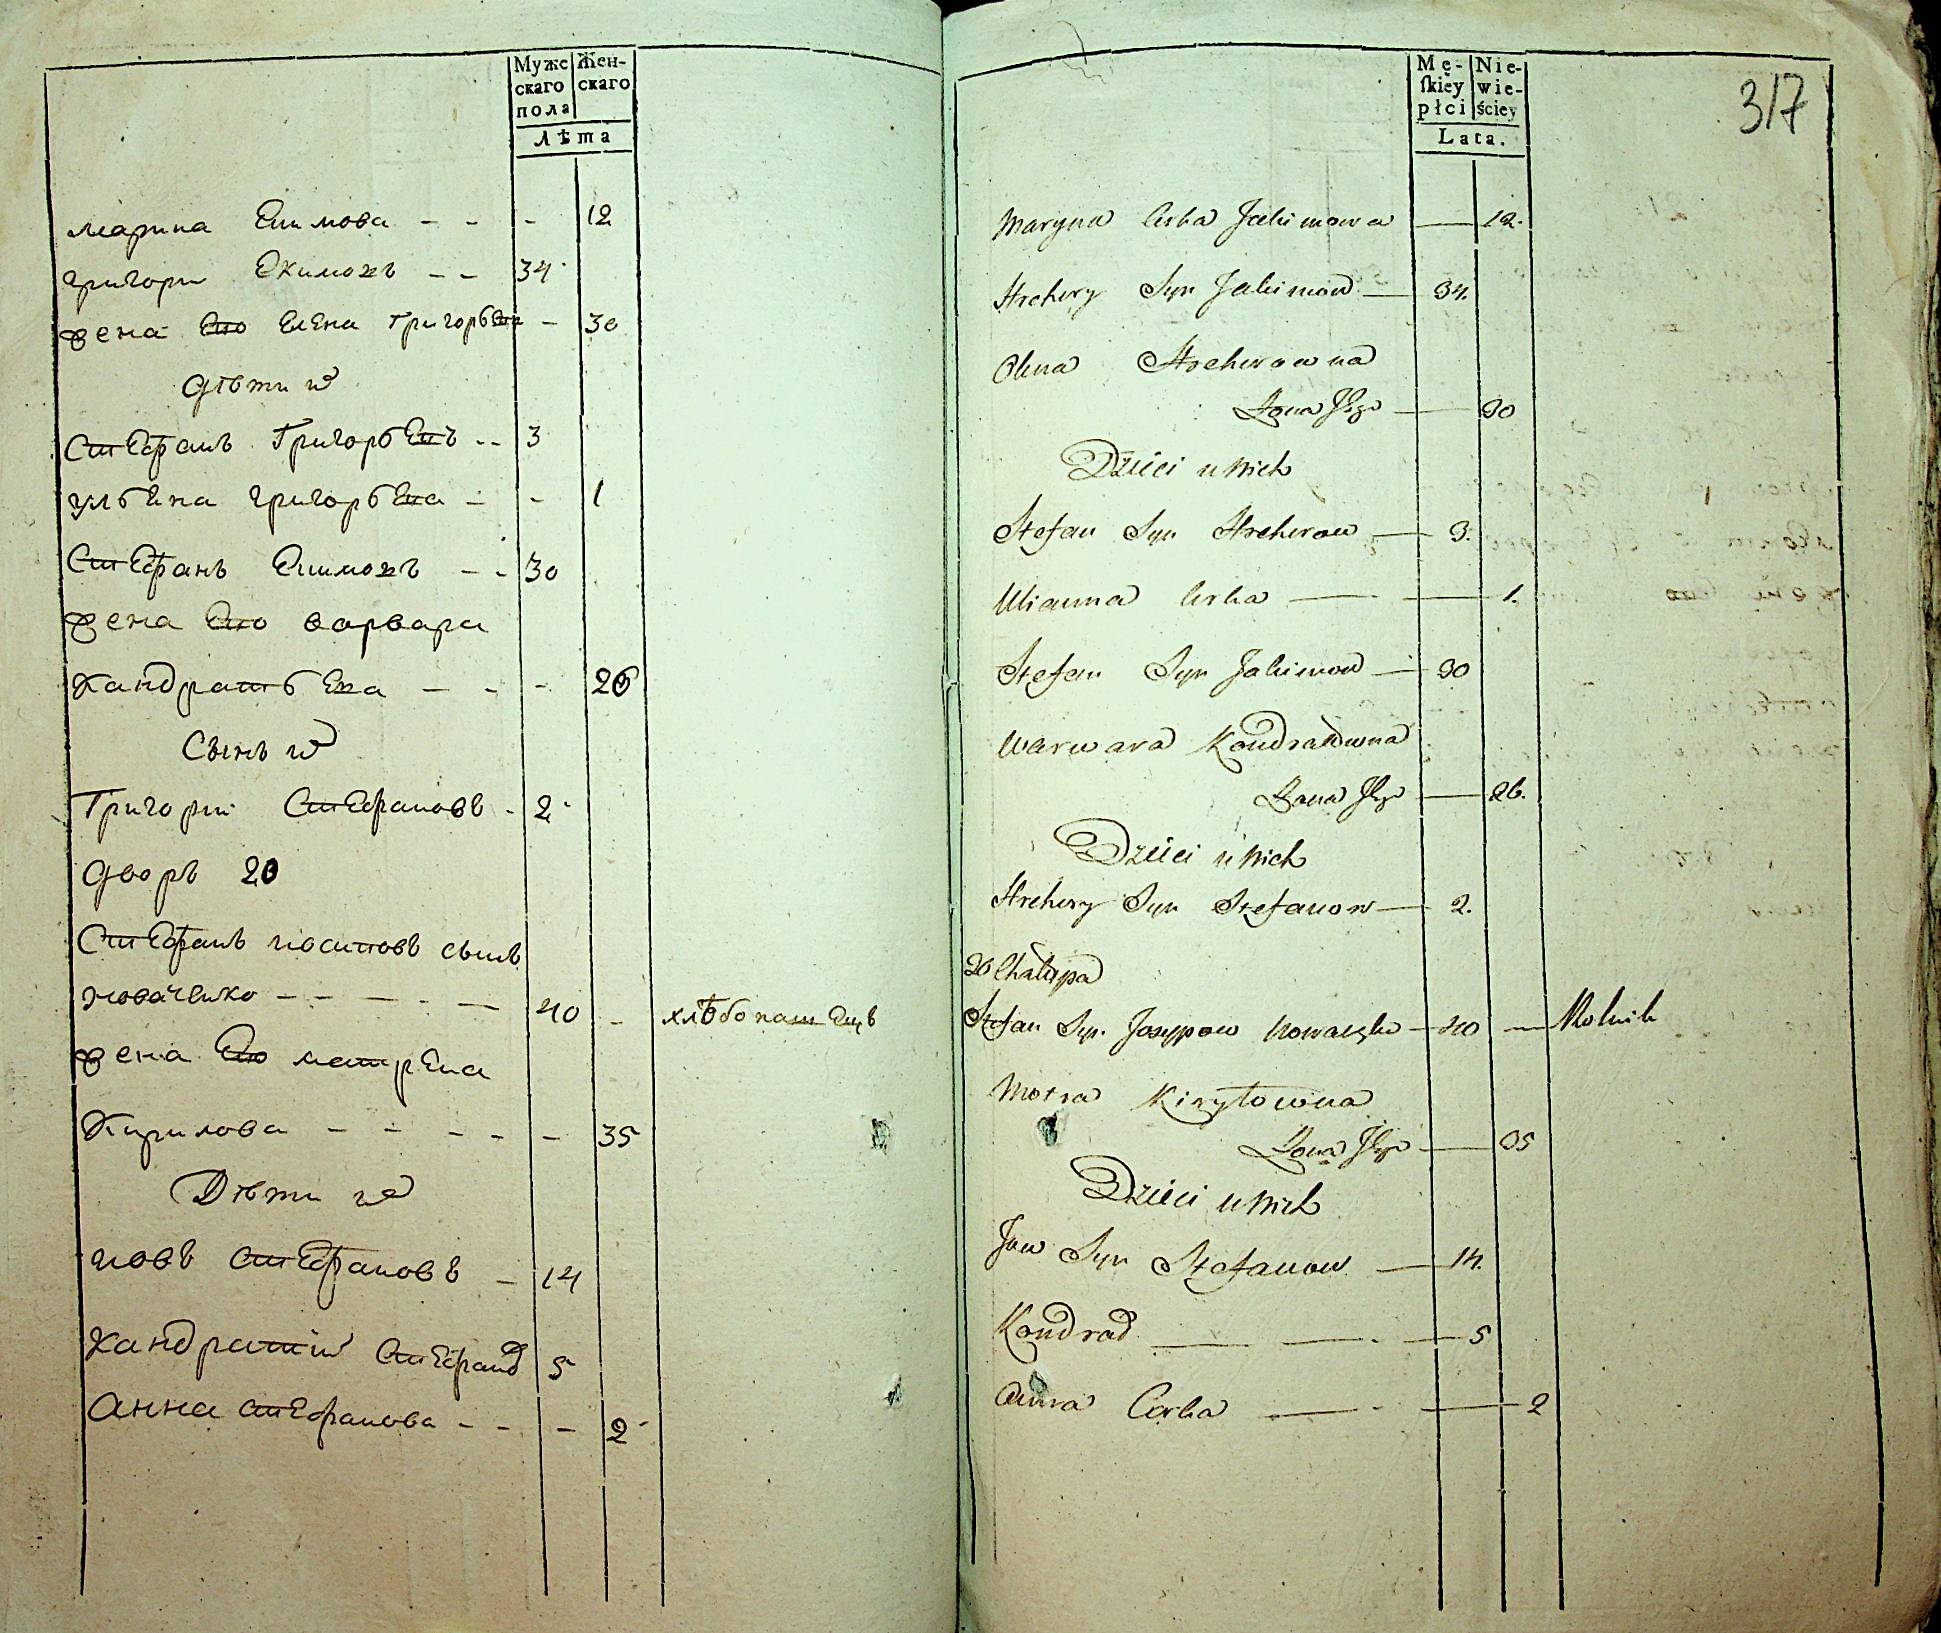 Муже
скаго
пола
Жен-
скаго
лѣта
марина Екимова - - - 12
григори Екимовъ - - 34
жена Его Елена григорьева - 30
Дѣти ихъ
Стефанъ Григорьевъ - - 3
ульяна григорьева - - 1
Стефанъ Екимовъ - - 30
жена Его варвара
Кандратьева - - - 26
Сынъ ихъ
Григорий Стефановъ - 2
Дворъ 20
Стефанъ иосиповъ сынъ
- - - - 40 - хлѣбопашецъ
жена Его матрена
Кирилова - - - - - 35
Дѣти ихъ
иовъ Стефановъ - 14
Кандратий Стефанов 5
Анна Стефанова - - - 2
Mę-
ſkiey
płci
Nie-
wie-
ściey
Lata.
317
Maryna Corka Jakimowa — 12.
Hrehory Syn Jakimow — 34.
Olena Hrehorowna
Żona Jego — 30
Dzieci u Nich
Stefan Syn Hrehorow — 3.
Ulianna Corka — — 1.
Stefan Syn Jakimow — 30
Warwara Kondratowna
Żona Jego — 26.
Dzieci u Nich
Hrehory Syn Stefanow — 2.
20 Chałupa
Stefan Syn Jozypow — 40 — Rolnik
Motra Kiryłowna
Żona Jego — 35
Dzieci u Nich
Jow Syn Stefanow — 14.
Kondrad — — — 5
Anna Corka — — 2